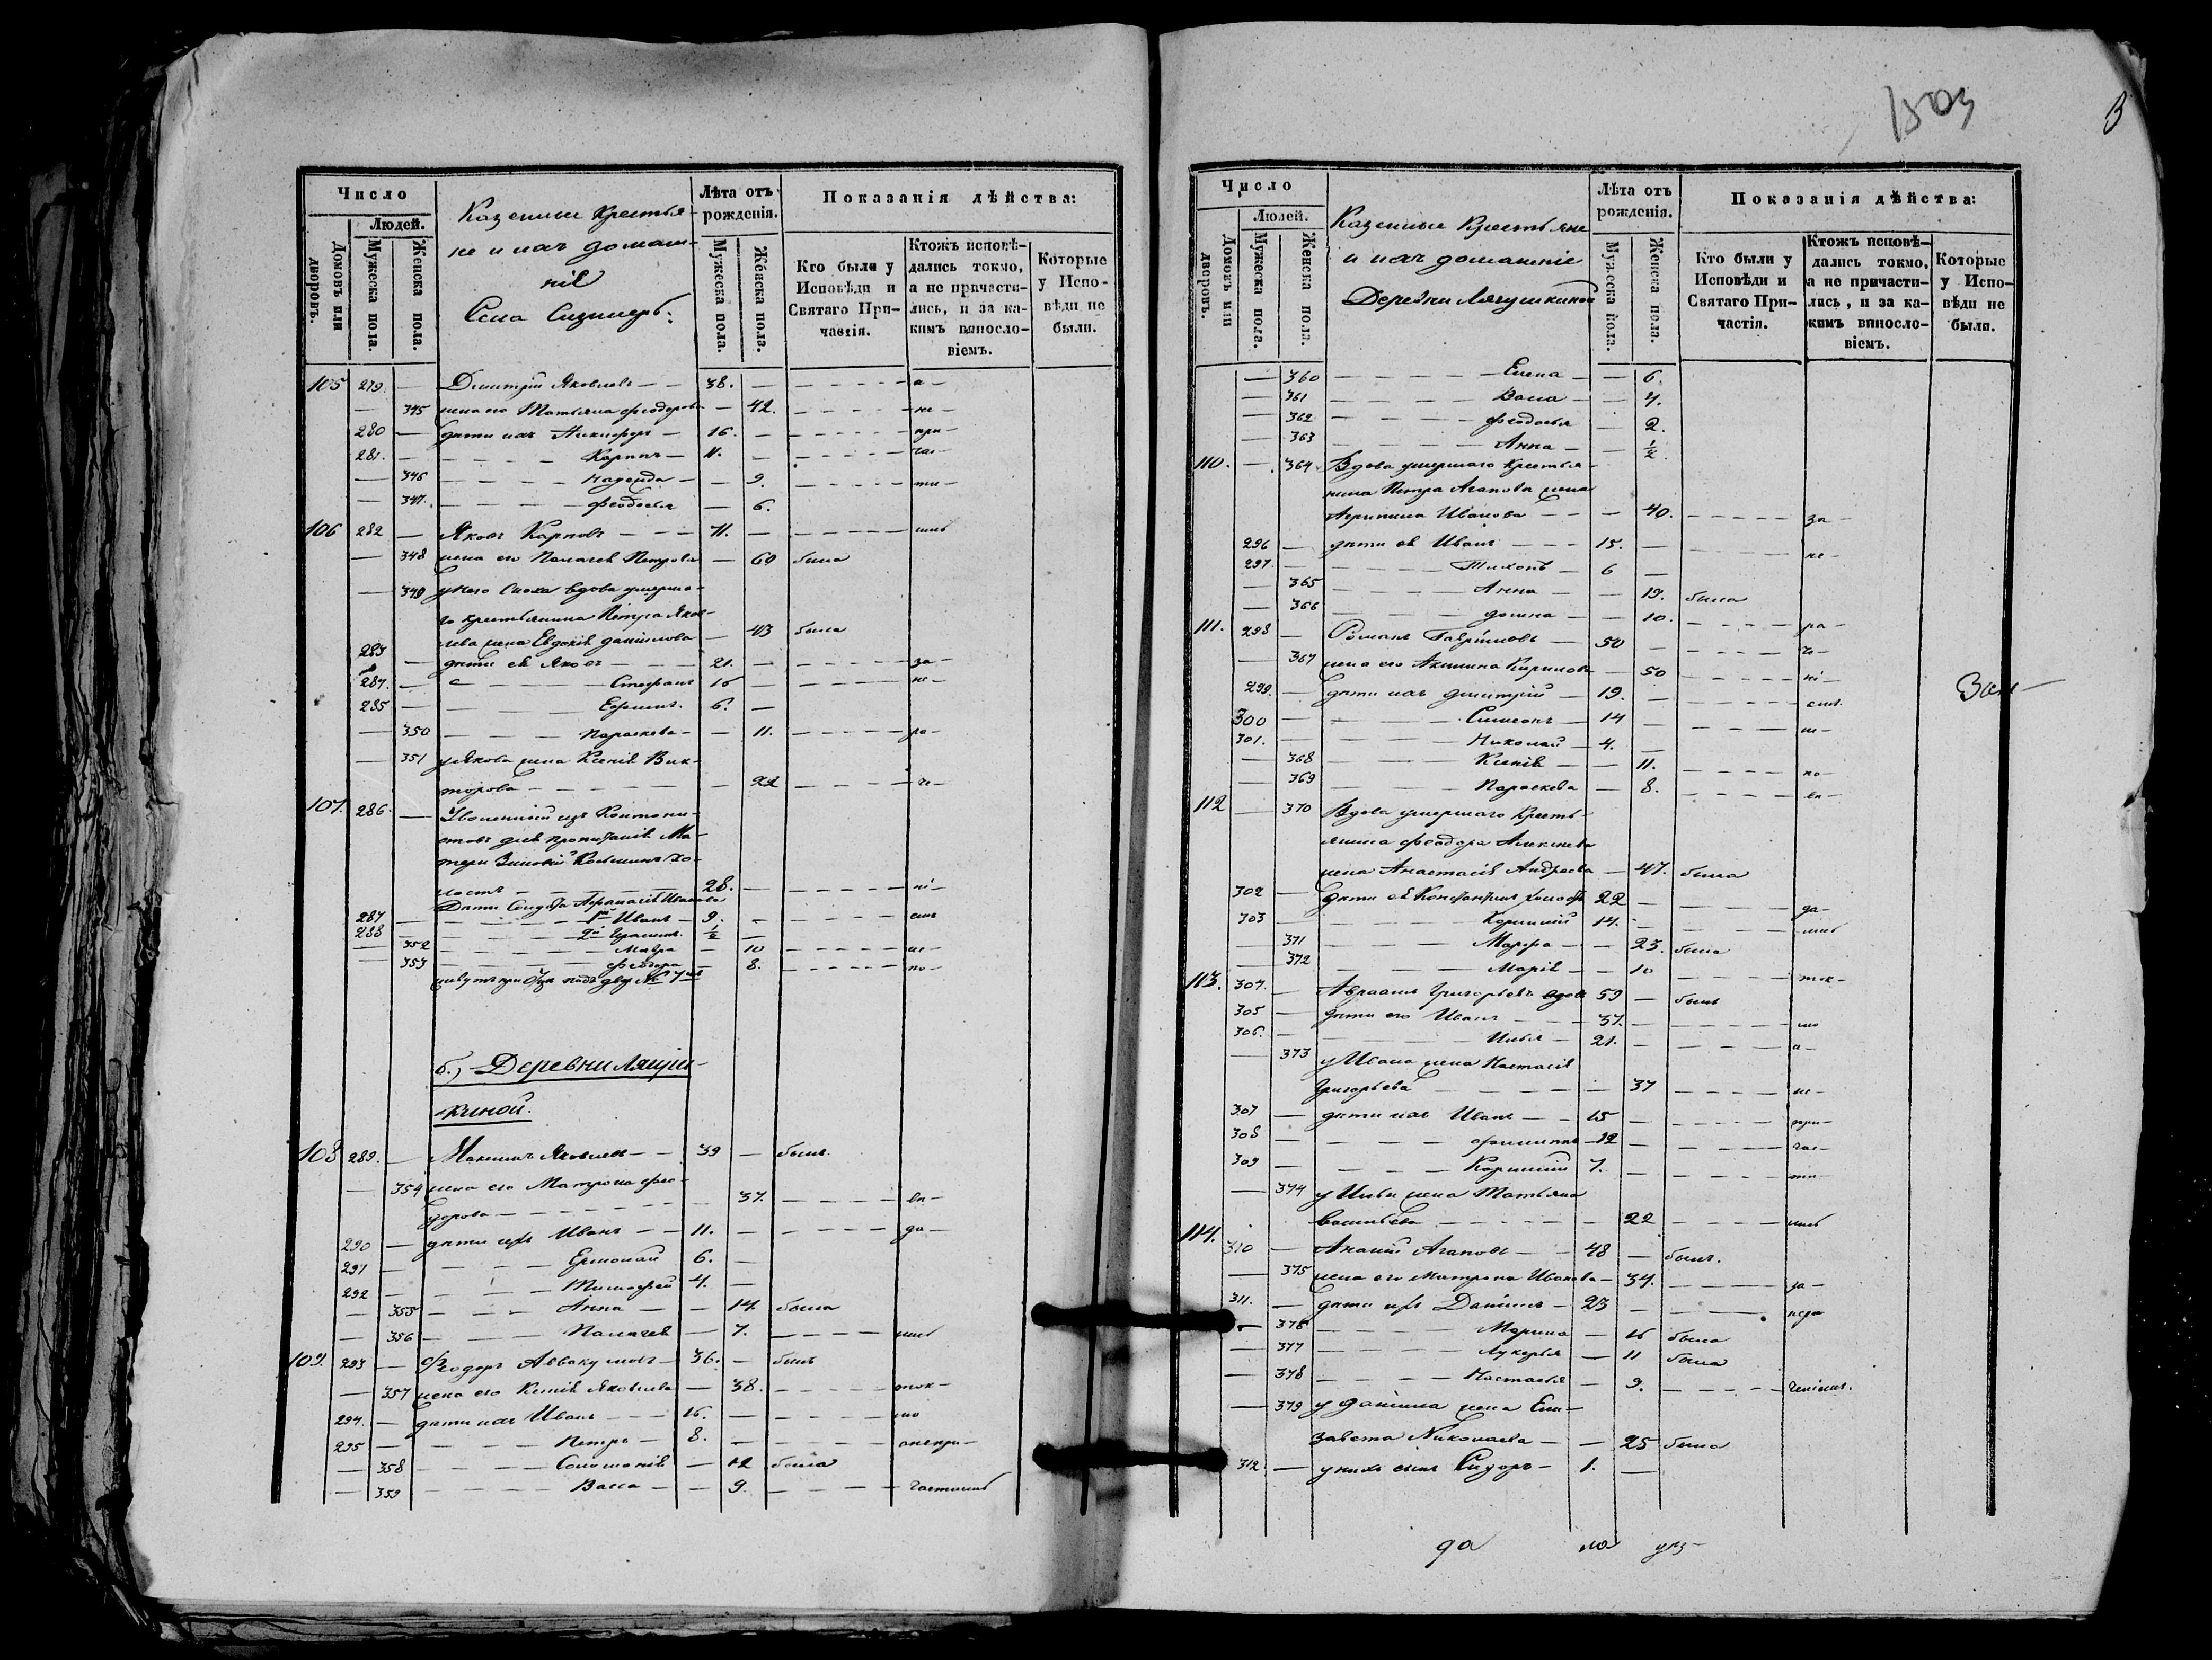 Число
Людей.
Домовъ или дворовъ.
Мужеска пола.
Женска пола.
Казенные Крестья-
не и ихъ домаш-
ніе
Села
Лѣта отъ рожденія.
Мужеска пола.
Женска пола.
Показанія дѣйства:
Кто были у Исповѣди и Святаго Причастія.
Ктожъ исповѣдались токмо, а не причастились, и за какимъ винословіемъ.
Которые у Исповѣди не были.
105 279. — Дмитрій Яковлевъ — 38. — а —
— 345 жена его Татьяна Феодорова — 42. — не —
280 — дѣти ихъ Никифоръ — 16. — при —
281. — Карпъ — 11. — час —
— 346 Надежда — 9. — ти —
— 347. Феодосья — 6.
106 282 — Яковъ Карповъ — 71. — лись
— 348 жена его Палагея Петрова — 60 была
— 349 у него сноха вдова умерша-
го крестьянина Петра Яков-
лева жена Евдокія Данилова — 43 была
283 — дѣти ея Яковъ — 21. — за —
284. — Стефанъ 16 — не —
285 — Ефимъ. 6. —
— 350 Параскева — 11. — ра —
— 351 у Якова жена Ксенія Вик-
торова — 22 — че —
107. 286. — Уволенный изъ Кантони-
стовъ для пропитанія Ма-
тери
28. — ні —
287 — 1й Иванъ — 9. — емъ
288 — 2й ½ —
— 352 Мавра — 10 — ис —
— 353 Феодора — 8. — по —
б.) Деревни Лягуш-
киной.
108 289. — Максимъ Яковлевъ — 39 — былъ.
— 354 жена его Матрона Фео-
дорова — 37. — вѣ —
290 — дѣти ихъ Иванъ — 11. — да —
291 — Ермолай 6. —
292 — Тимофей 4. —
— 355 Анна — 14. была
— 356 Палагея — 7. — лись
109. 293 — Феодоръ Аввакумовъ — 36. — былъ
— 357 жена его Ксенія Яковлева — 38. — ток —
294. — дѣти ихъ Иванъ — 16. — мо
295 — Петръ — 8. — а не при —
— 358 Соломонія — 12 была
— 359 Васса — 9. — частились
1503
Число
Людей.
Домовъ или дворовъ.
Мужеска пола.
Женска пола.
Казенные Крестьяне
и ихъ домашніе
Деревни Лягушкиной
Лѣта отъ рожденія.
Мужеска пола.
Женска пола.
Показанія дѣйства:
Кто были у Исповѣди и Святаго Причастія.
Ктожъ исповѣдались токмо, а не причастились, и за какимъ винословіемъ.
Которые у Исповѣди не были.
— 360 Елена — 6.
— 361 Васса — 4.
— 362 Феодосья — 2.
— 363 Анна — ½.
110. — 364 Вдова умершаго Крестья-
нина Петра Агапова жена
Агрипина Иванова — 40. — за —
296 — дѣти ея Иванъ — 15. — не —
297. — Тихонъ — 6 —
— 365 Анна — 19. была
— 366 Домна — 10. — ра —
111. 298 — Романъ Гавриловъ — 50 — че —
— 367 жена его Акилина Кирилова — 50 — ні —
299. — дѣти ихъ Дмитрій — 19. — емъ.
300 — Симеонъ — 14 — ис —
301. — Николай — 4. —
— 368 Ксенія — 11. — по —
— 369 Параскева — 8. — вѣ —
112 — 370 Вдова умершаго Кресть-
янина Феодора Алексѣева
жена Анастасія Андреева — 47. была
302 — дѣти ея Константинъ холостъ 22 — да —
303 — Корнилій 14. — лись
— 371 Марфа — 23. была
— 372 Марія — 10 — ток —
113. 304. — Авраамъ Григорьевъ вдовъ 59 — былъ
305 — дѣти его Иванъ — 37. — мо
306. — Илья — 21. — а —
— 373 у Ивана жена Настасія
Григорьева — 37 — не —
307 — дѣти ихъ Иванъ — 15 — при —
308 — Филиппъ — 12 — час —
309 — Корнилій 7. — ти —
— 374 у Ильи жена Татьяна
Васильева — 22 — лись
114. 310 — Ананій Агаповъ — 48 — былъ.
— 375 жена его Матрона Иванова — 34. — за —
311. — дѣти ихъ Даніилъ — 23 — нера
— 376 Марина — 16 была
— 377 Лукерья — 11 была
— 378 Настасья — 9. — ченіемъ.
— 379 у Даніила жена Ели-
завета Николаева — 25 была
312 — у нихъ сынъ Сидоръ — 1. —